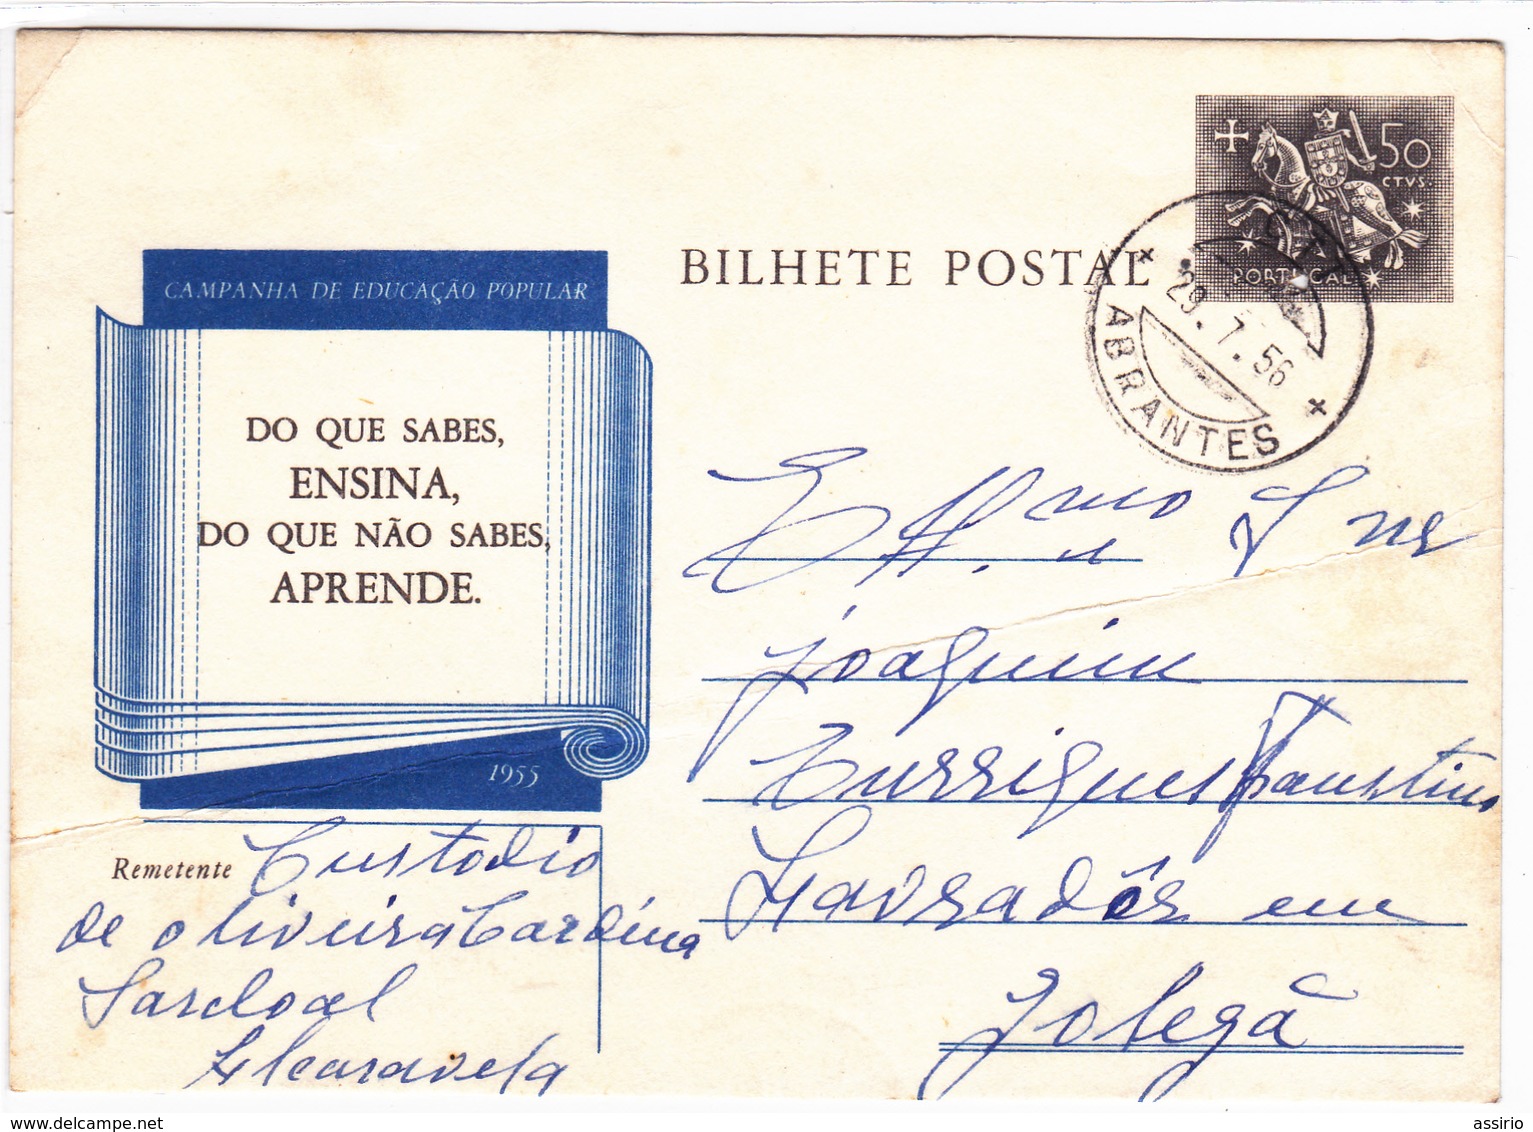 50
CTVS.
PORTUGAL
BILHETE POSTAL
CTT
29.7.56
ABRANTES
CAMPANHA DE EDUCAÇÃO POPULAR
DO QUE SABES,
ENSINA,
DO QUE NÃO SABES,
APRENDE.
1955
Snr
joaquim
Faustino
Lavradôr em
Golegã
Remetente Custodio
de oliveira Cardina
Sardoal
Alcaravela
www.delcampe.net
assirio